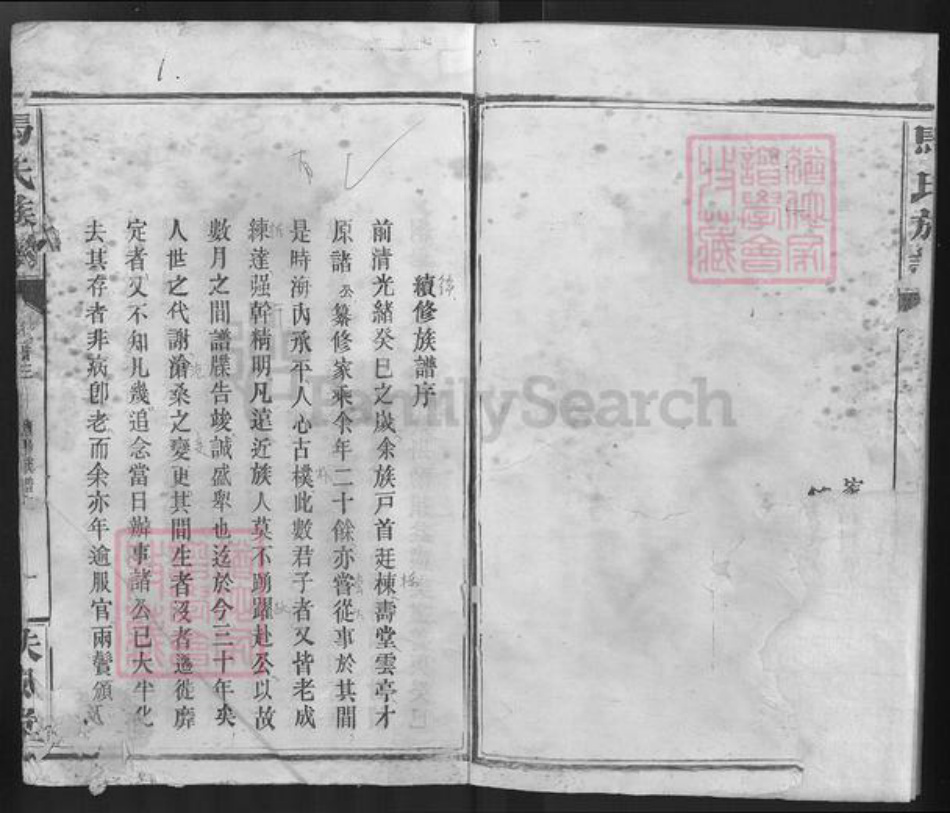 馬氏族
續修族譜序
前清光緒癸巳之歲余族戶首廷棟壽堂雲亭才
原諸公纂修家乘余年二十餘亦嘗從事於其間
是時海內承平人心古樸此數君子者又皆老成
練達强幹精明凡遠近族人莫不踴躍赴公以故
數月之間譜牒告竣誠盛舉也迄於今三十年矣
人世之代謝滄桑之變更其間生者沒者遷徙靡
定者又不知凡幾追念當日辦事諸公已大半化
去其存者非病卽老而余亦年逾服官兩鬢頒
馬氏族譜
1.
FamilySearch
譜學會
收藏